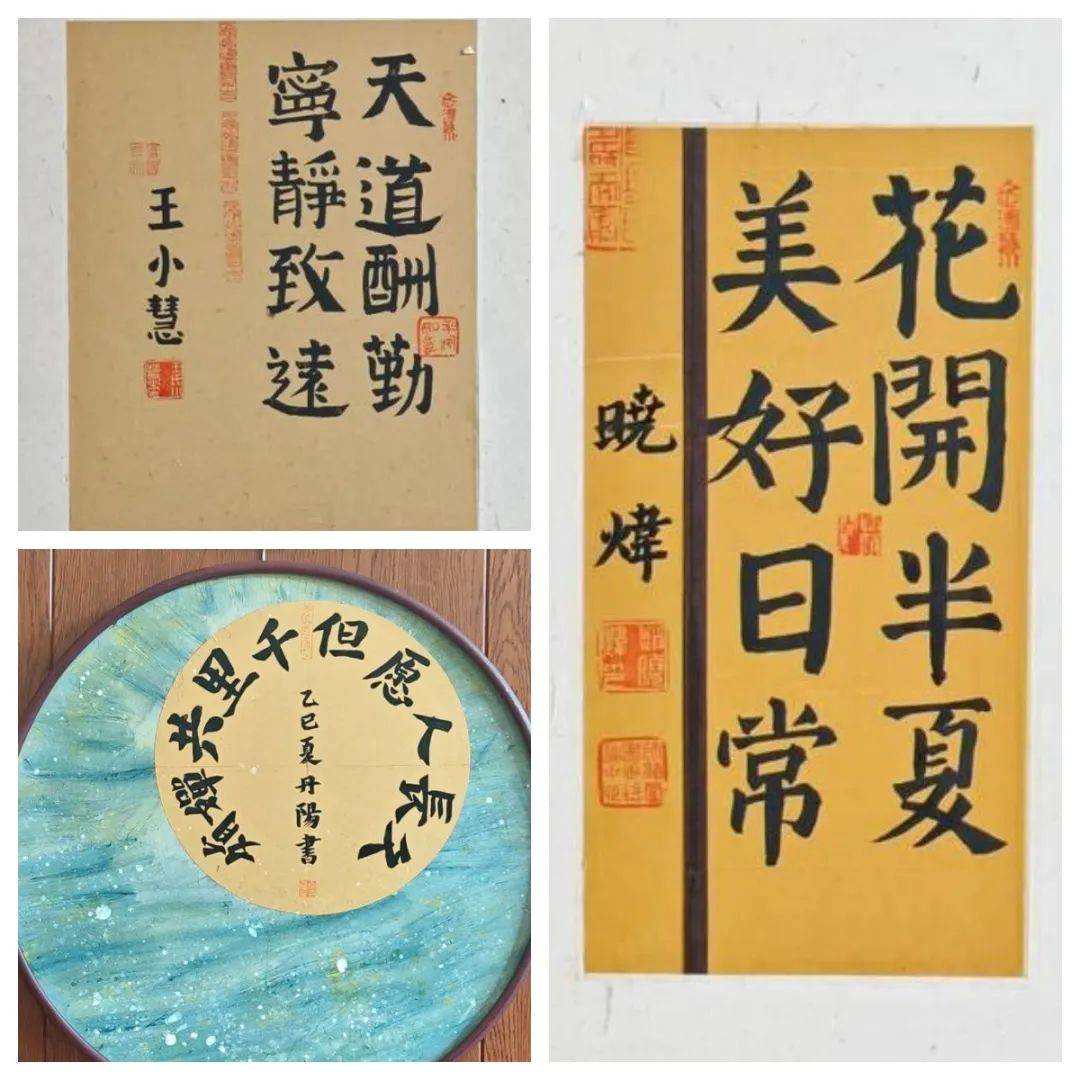 天道酬勤
寧靜致遠
王小慧
但愿人長久
千里共嬋娟
乙巳夏丹陽書
花開半夏
美好日常
暁煒